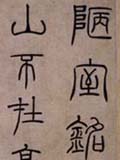 陋室銘
山不在高